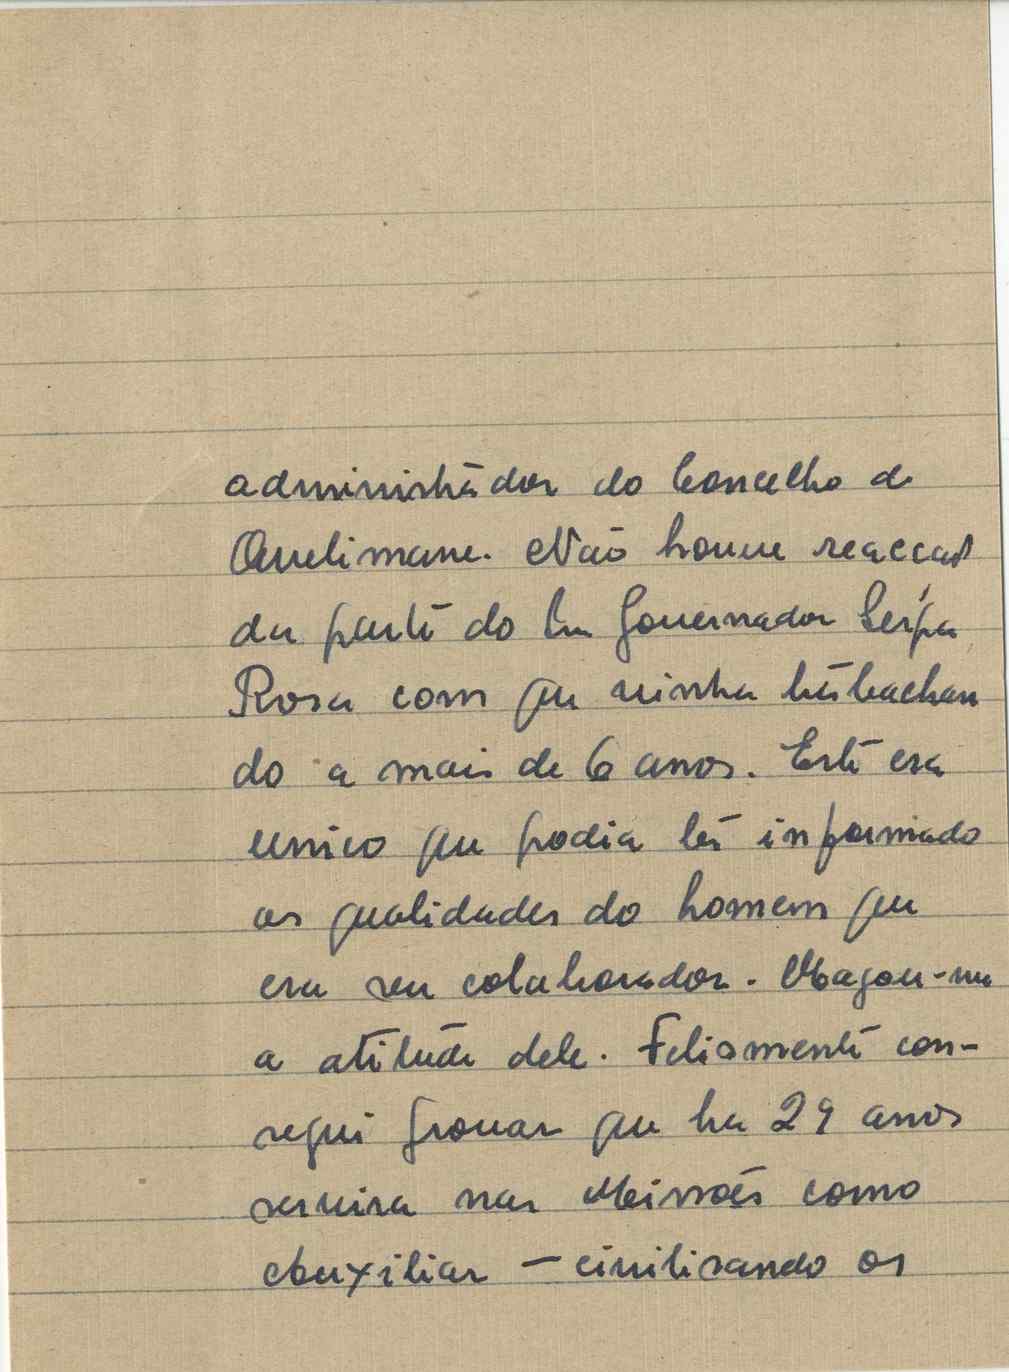 administrador do Concelho de
Quelimane. Não houve reaccaõ
da parte do Governador Serpa
Rosa com que vinha trabachan
do a mais de 6 anos. Este era
unico que podia ter informado
as qualidades do homem que
era seu colaborador. Magou-me
a atitude dele. Felismente con-
segui provar que ha 29 anos
servira nas Missões como
Auxiliar - civilisando os